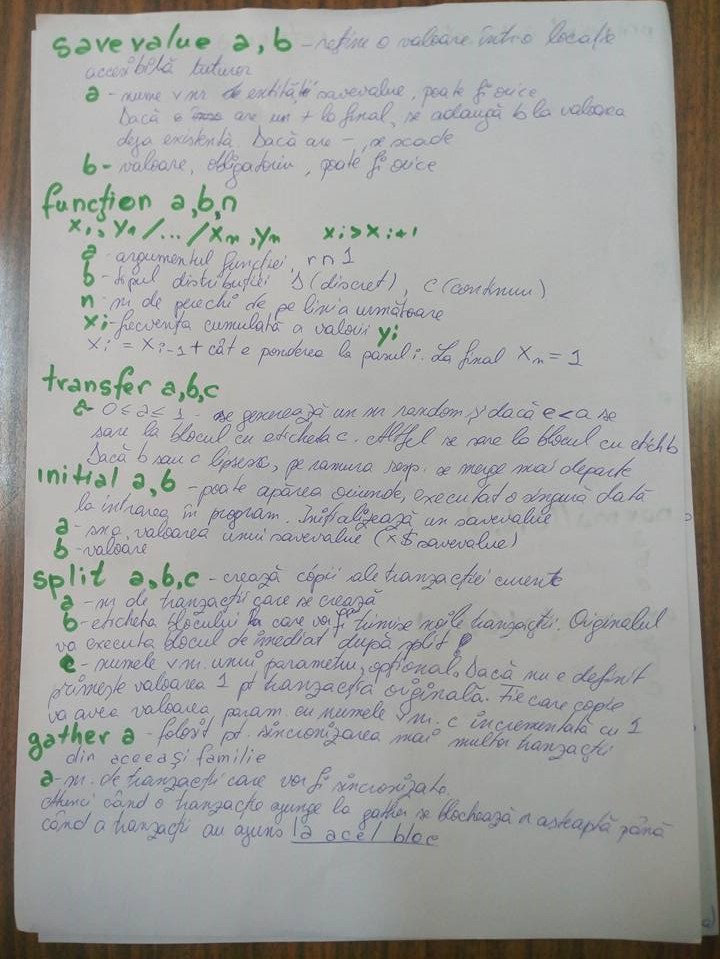 savevalue a,b - reține o valoare într-o locație
accesibilă tuturor
a - nume v nr. de entității savevalue, poate fi orice
Dacă are un + la final, se adaugă b la valoarea
deja existentă. Dacă are -, se scade
b - valoare, obligatoriu, poate fi orice
funcțion a,b,n
x1, y1 /.../ xn, yn xi > xi+1
a - argumentul funcției, rn1
b - tipul distribuției D(discret), C(continuu)
n - nr. de perechi de pe linia următoare
xi - frecvența cumulată a valorii yi
xi = xi-1 + cât e ponderea la pasul i. La final xn = 1
transfer a,b,c
a - 0 ≤ a ≤ 1 - se generează un nr random și dacă e < a se
sare la blocul cu eticheta c. Altfel se sare la blocul cu etich b
Dacă b sau c lipsesc, pe ramura resp. se merge mai departe
initial a,b - poate apărea oriunde, executat o singură dată
la intrarea în program. Inițializează un savevalue
a - sna, valoarea unui savevalue (x$savevalue)
b - valoare
split a,b,c - crează copii ale tranzacției curente
a - nr de tranzacții care se crează
b - eticheta blocului la care vor fi trimise noile tranzacții. Originalul
va executa blocul de imediat după split
c - numele v nr. unui parametru, opțional. Dacă nu e definit
primește valoarea 1 pt tranzacția originală. Fiecare copie
va avea valoarea param. cu numele v nr. c incrementată cu 1
gather a - folosit pt. sincronizarea mai multor tranzacții
din aceeași familie
a - nr. de tranzacții care vor fi sincronizate.
Atunci când o tranzacție ajunge la gather se blochează și așteaptă până
când a tranzacții au ajuns la acel bloc